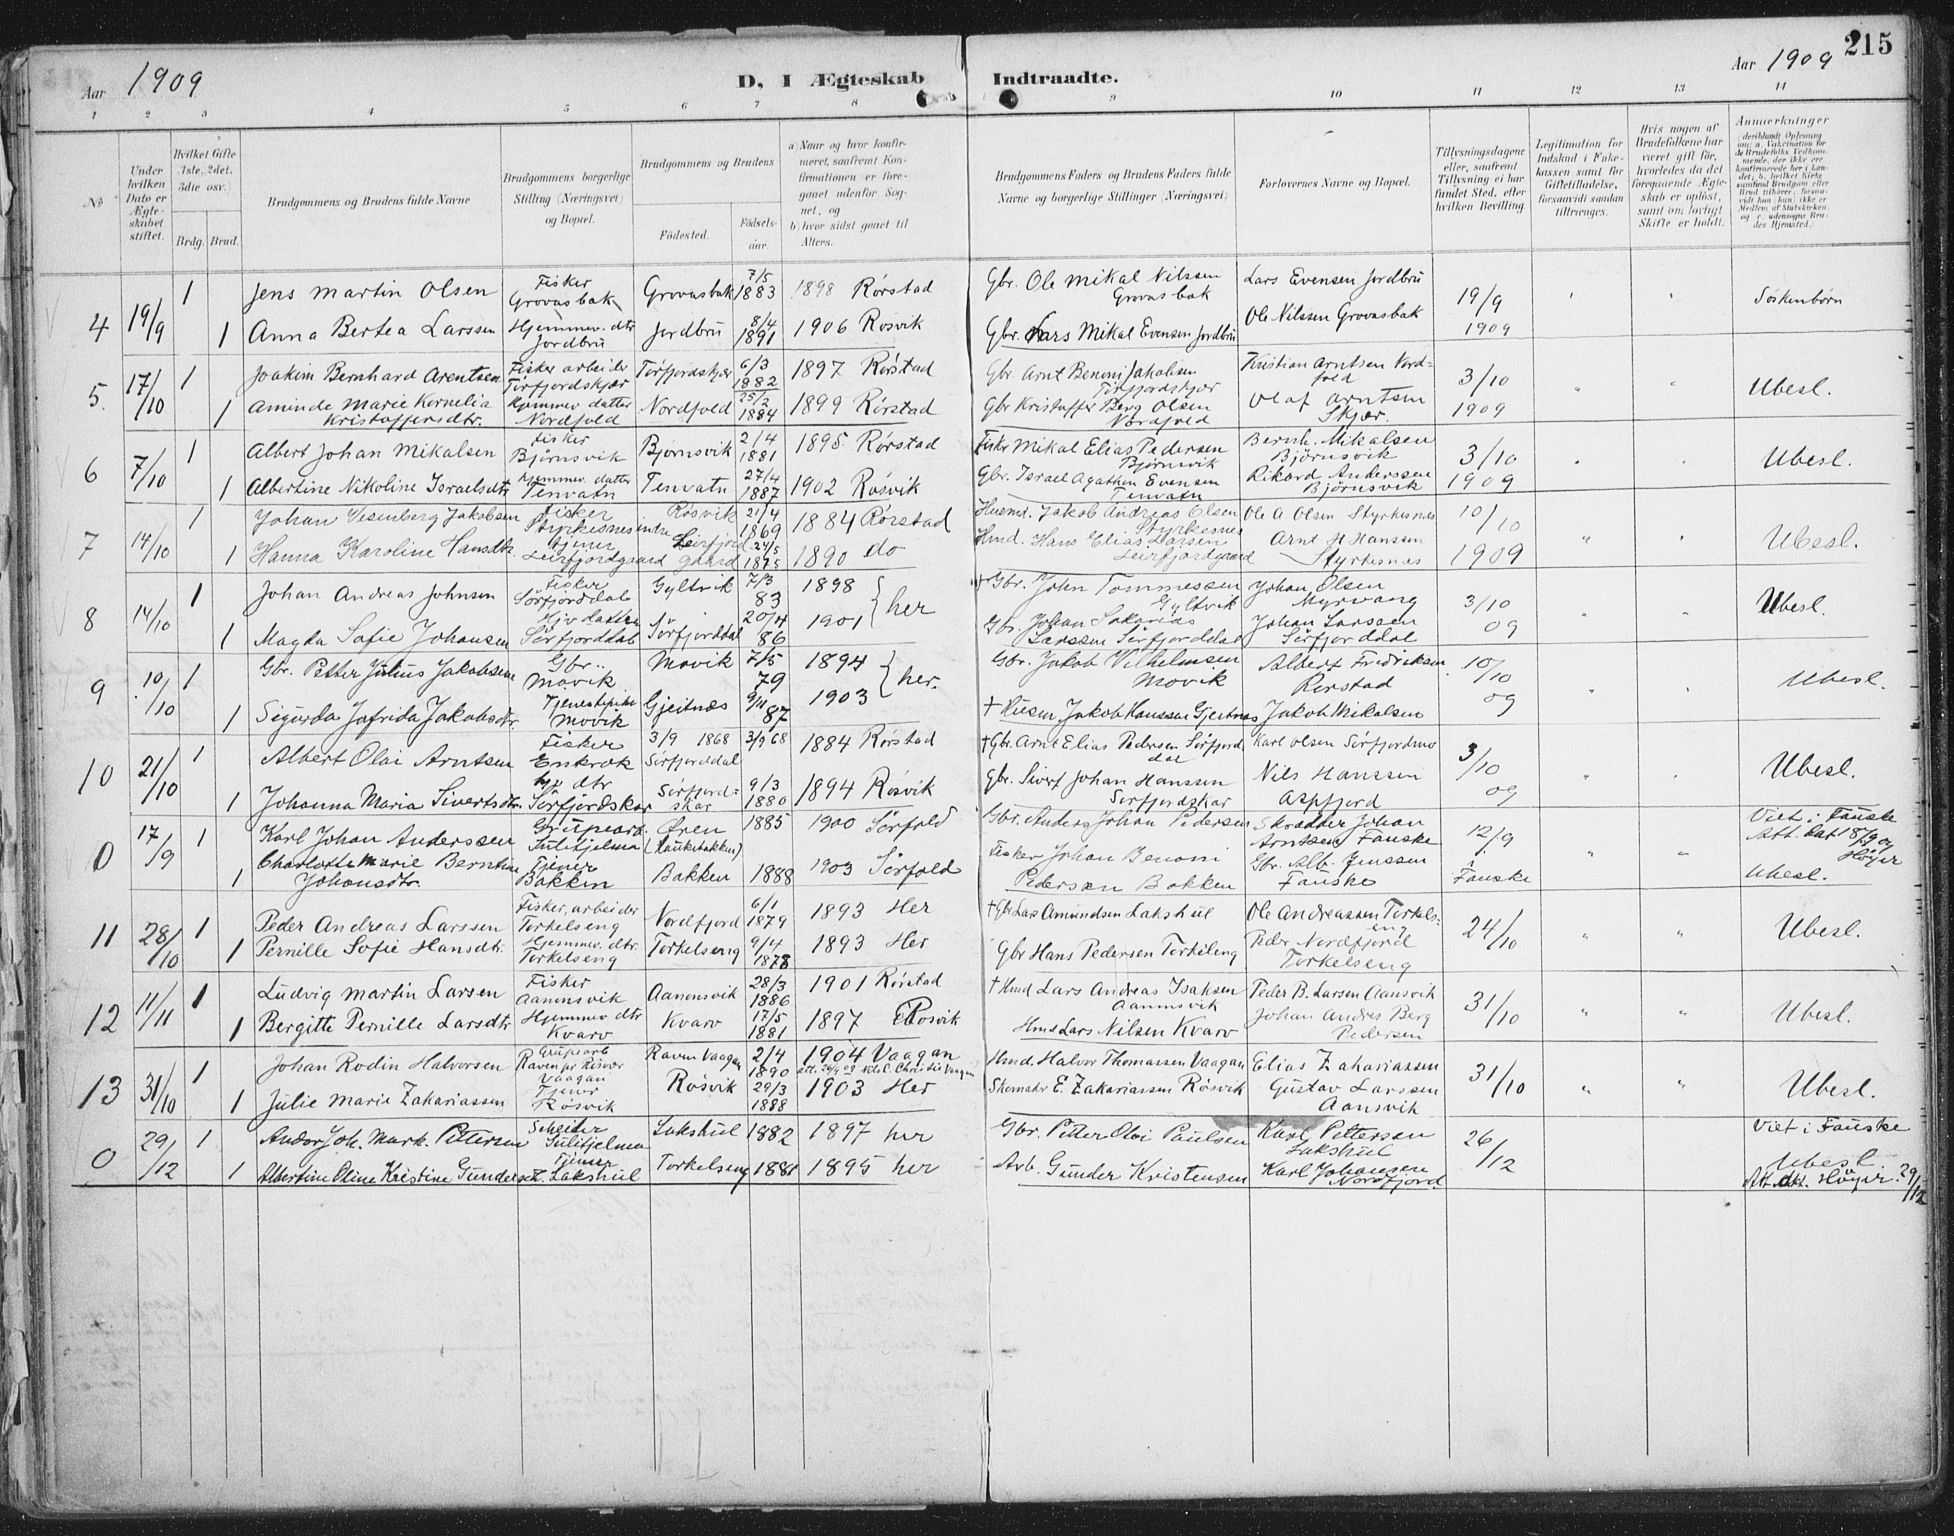 215
Aar 1909
D, I Ægteskab Indtraadte.
Aar 1909
1 2 3 4 5 6 7 8 9 10 11 12 13 14
No
Under hvilken Dato er Ægteskabet stiftet.
Hvilket Gifte (1ste, 2det, 3die osv.)
Brdg. Brud.
Brudgommens og Brudens fulde Navne
Brudgommens borgerlige Stilling (Næringsvei) og Bopæl.
Brudgommens og Brudens
Fødested. Fødselsaar.
a) Naar og hvor konfirmeret, saafremt Konfirmationen er foregaaet udenfor Sognet, og
b) hvor sidst gaaet til Alters.
Brudgommens Faders og Brudens Faders fulde Navne og borgerlige Stillinger (Næringsvei)
Forlovernes Navne og Bopæl.
Tillysningsdagene eller, saafremt Tillysning ei har fundet Sted, efter hvilken Bevilling
Legitimation for Indskud i Enkekassen samt for Giftetilladelse, forsaavidt saadan tiltrænges.
Hvis nogen af Brudefolkene har været gift før, hvorledes da det foregaaende Ægteskab er opløst, samt om lovligt Skifte er holdt.
Anmærkninger
4 19/9 1 Jens Martin Olsen Fisker Grovasbak Grovasbak 7/5 1883 1898 Rørstad Gbr. Ole Mikal Nilssen Grovasbak Lars Evensen Jordbru 19/9 1909 Søskenbørn
1 Anna Bertea Larssen Hjemmev. dtr Jordbru Jordbru 8/4 1891 1906 Rosvik Gbr. Lars Mikal Evensen Jordbru Ole Nilssen Grovasbak
5. 17/10 1 Joakim Bernhard Arentsen Fisker arbeider Tørfjordskjær Tørfjordskjær 6/3 1882 1897 Rørstad Gbr Arnt Benoni Jakobsen Tørfjordskjær Kristian Arntsen Nordfold 3/10 1909 Ubesl.
1 Aminde Marie Kornelia Kristoffersdtr. Hjemmev datter Nordfold Nordfold 25/2 1884 1899 Rørstad Gbr Kristoffer Berg Olsen Nordfold Olaf Arntsen Skjær.
6 7/10 1 Albert Johan Mikalsen Fisker Bjørnsvik Bjørnsvik 2/4 1881 1895 Rørstad Fisker Mikal Elias Pedersen Bjørnsvik Bernh. Mikalsen Bjørnsvik 3/10 1909 Ubesl.
1 Albertine Nikoline Israelsdtr Hjemmev. datter Tenvatn Tenvatn 27/4 1887 1902 Røsvik Gbr. Israel Agathon Evensen Tenvatn Rikard Anderssen Bjørnsvik
7 14/10 1 Johan Vesenberg Jakobsen Fisker Styrkesnes indre Røsvik 21/4 1869 1884 Rørstad Husmd. Jakob Andreas Olsen Styrkesnes Ole A Olsen Styrkesnes 10/10 1909 Ubesl.
1 Hanna Karoline Hansdtr. tjener Leirfjordgaard Leirfjordgaard 24/5 1875 1890 do Hmd. Hans Elias Larsen Leirfjordgaard Arnt H Hansen Styrkesnes
8 14/10 1 Johan Andreas Johnsen Fisker Sørfjorddal Gyltvik 7/3 83 1898 her †Gbr. John Tommessen Gyltvik Johan Olsen Myrvang 3/10 09 Ubesl.
1 Magda Sofie Johansen Hjv datter Sørfjorddal Sørfjorddal 20/4 86 1901 Gbr. Johan Sakarias Larssen Sørfjorddal Johan Larssen Sørfjorddal
9 10/10 1 Gbr. Petter Julius Jakobsen Gbr. Movik Movik 7/5 79 1894 her. Gbr. Jakob Vilhelmsen Movik Albert Fredriksen Rørstad 10/10 09 Ubesl.
1 Sigurda Jafrida Jakobsdtr. Tjenestepike Movik Gjeitnæs 9/11 87 1903 † Husm. Jakob Hanssen Gjeitnæs Jakob Mikalsen
10 21/10 1 Albert Olai Arntsen Fisker Enkrok 3/9 1868 Sørfjorddal 3/9 68 1884 Rørstad †Gbr. Arnt Elias Pedersen Sørfjorddal Karl Olsen Sørfjordmo 3/10 09 Ubesl.
1 Johanna Maria Sivertsdtr. hjv dtr Sørfjordskar Sørfjordskar 9/3 1880 1894 Røsvik Gbr. Sivert Johan Hanssen Sørfjordskar Nils Hanssen Aspfjord
0 17/9 1 Karl Johan Anderssen Grubearb. Sulitjelma Øren (Haukebakken) 1885 1900 Sørfold Gbr. Anders Johan Pedersen Skrædder Johan Arntsen Fauske 12/9 Fauske Viet i Fauske Att. dat 18/9 09 Høyer
1 Charlotte Marie Berntine Johansdtr. Tjener Bakken Bakken 1888 1903 Sørfold Fisker Johan Benoni Pedersen Bakken Gbr. Alb. Jenssen Fauske Ubesl.
11 28/10 1 Peder Andreas Larssen Fisker, arbeider Torkelseng Nordfjord 6/1 1879 1893 Her †Gbr Lars Amundsen Lakshul Ole Andreassen Torkelseng 24/10 Ubesl.
1 Pernille Sofie Hansdtr. Hjemmev. dtr. Torkelseng Torkelseng 9/4 1878 1893 Her Gbr Hans Pedersen Torkelseng Peder Nordfjord Torkelseng
12 11/11 1 Ludvig Martin Larsen Fisker Aanensvik Aanensvik 28/3 1886 1901 Rørstad †Hmd Lars Andreas Isaksen Aanensvik Peder B. Larsen Aansvik 31/10 Ubesl.
1 Bergitte Pernille Larsdtr Hjemmev dtr Kvarv Kvarv 17/5 1881 1897 Rosvik Hmd Lars Nilsen Kvarv Johan Andres Berg Pedersen
13 31/10 1 Johan Rodin Halvorsen Grubearb Vaagan Raven Vaagan 2/4 1890 1904 Vaagan Hmd. Halvor Thomassen Vaagan Elias Zahariassen 31/10 Ubesl.
1 Julie Marie Zahariassen Tjener Røsvik Røsvik 29/3 1888 1903 Her Skomaker E. Zakariassen Røsvik Gustav Larssen Aansvik
0 29/12 1 Andor Joh. Mark. Pettersen Sulitjelma Lakshul 1882 1897 her Gbr. Petter Olai Paulsen Karl Pettersen Lakshul 26/12 Viet i Fauske
1 Albertine Oline Kristine Gundersdt. Tjener Lakshul Torkelseng 1881 1895 her Arb. Gunder Kristensen Karl Johansen Nordfjord Ubesl. Att. dat. Høyer 29/12